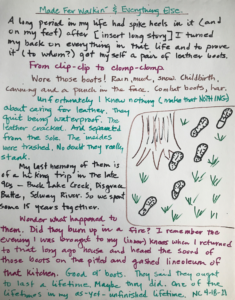 Made For Walkin' & Everything Else
A long period in my life had spike heels in it (and
on my feet) after [insert long story] I turned
my back on everything in that life and to prove
it (to whom?) got myself a pair of leather boots.
From clip-clip to clomp-clomp
Wore those boots! Rain, mud, snow. Childbirth,
canoeing and a punch in the face. Combat boots, har.
Unfortunately I knew nothing (make that NOTHING)
about caring for leather. They
quit being waterproof. The
leather cracked. And separated
from the sole. The insides
were trashed. No doubt they really,
stank.
My last memory of them is
of a hiking trip in the late
90s - Buck Lake Creek, Disgrace
Butte, Selway River. So we spent
some 15 years together.
Wonder what happened to
them. Did they burn up in a fire? I remember the
evening I was brought to my (inner) knees when I returned
to that log house and heard the sound of
those boots on the pitted and gashed linoleum of
that kitchen. Good ol' boots. They said they ought
to last a lifetime. Maybe they did. One of the
lifetimes in my as-yet-unfinished lifetime. NC